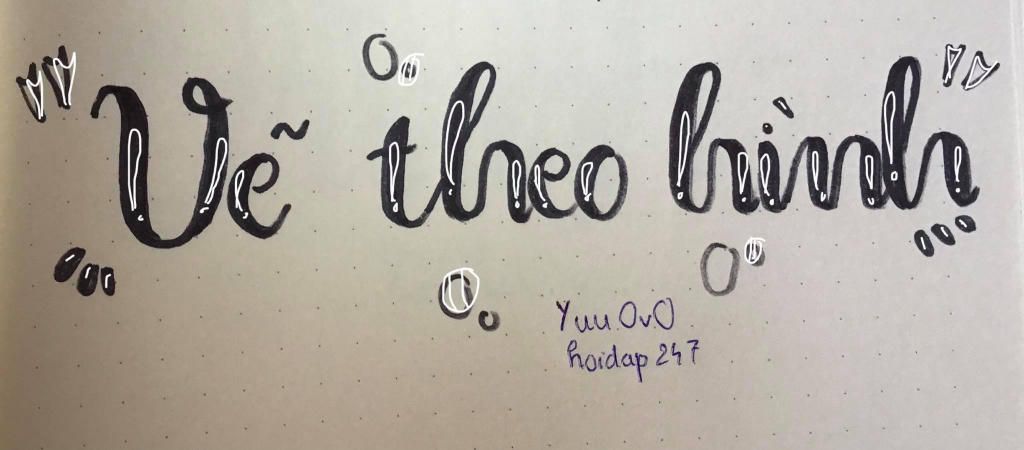 Vẽ theo hình
Yuu.OvO
hoidap247